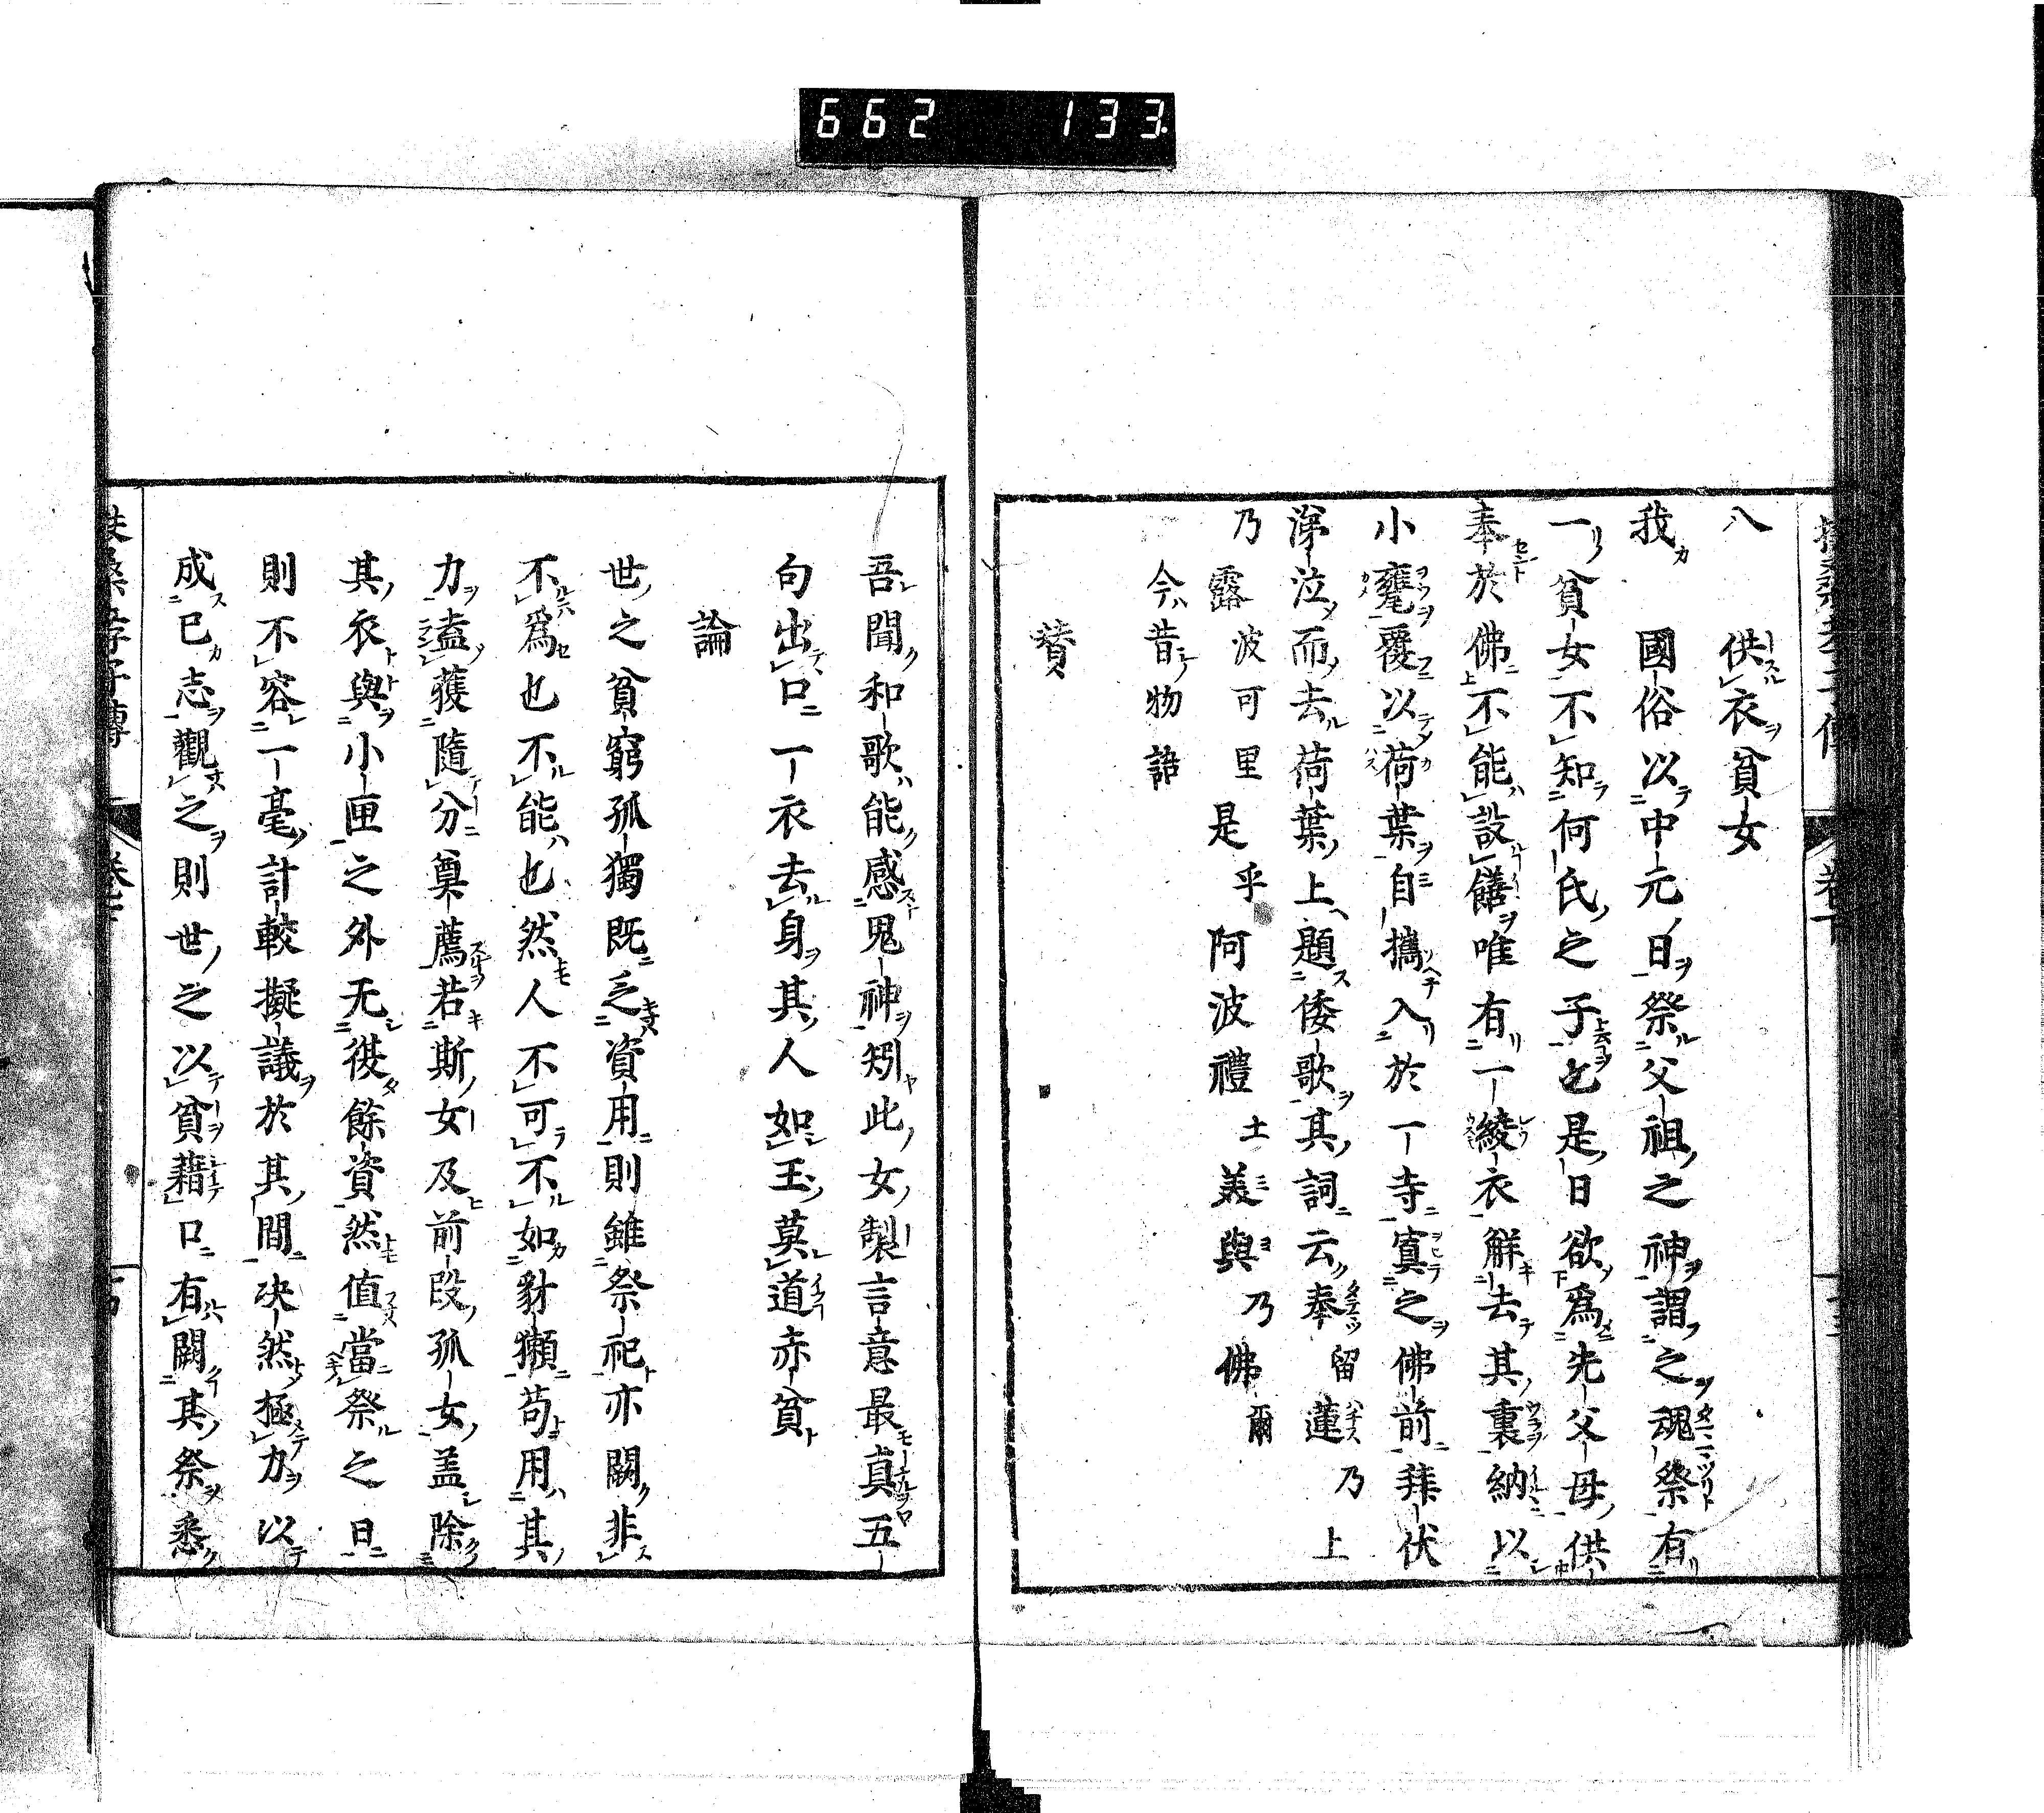 662 133
八　供衣貧女
我　國俗以中元日祭父祖之神謂之魂祭有
一貧女不知何氏之子也是日欲爲先父母供
奉於佛不能設饍唯有一綾衣解去其裏納以
小甕覆以荷葉自攜入於一寺寘之佛前拜伏
涕泣而去荷葉上題倭歌其詞云奉留蓮乃上
乃露波可里是乎阿波禮土美與乃佛爾
今昔物語
賛
吾聞和歌能感鬼神矧此女製言意最眞五
句出口一衣去身其人如玉莫道赤貧
論
世之貧窮孤獨既乏資用則雖祭祀亦闕非
不爲也不能也然人不可不如豺獺苟用其
力盍獲隨分奠薦若斯女及前段孤女盖除
其衣與小匣之外无復餘資然値當祭之日
則不容一毫計較擬議於其間决然極力以
成己志觀之則世之以貧藉口有闕其祭悉
扶桑孝子傳